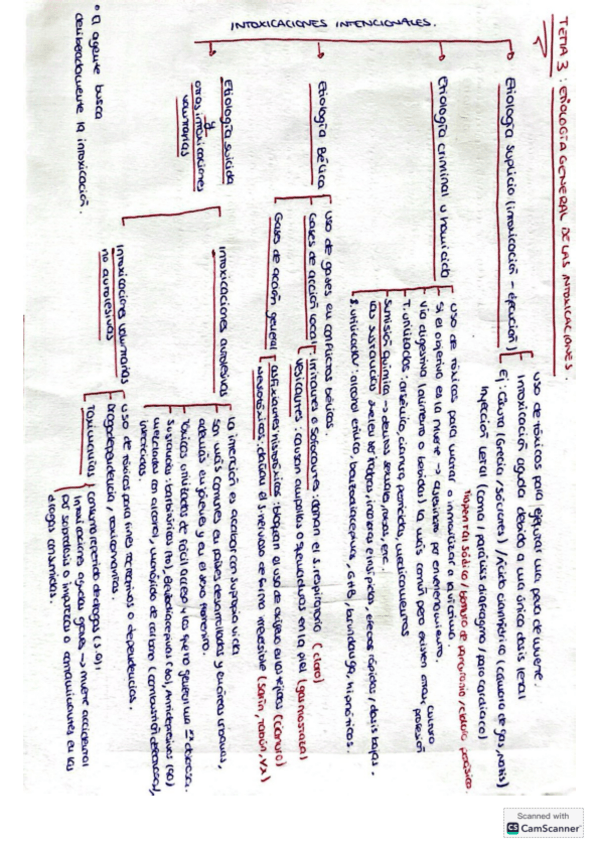 TEMA 3: ETIOLOGÍA GENERAL DE LAS INTOXICACIONES.
INTOXICACIONES INTENCIONALES.
Etiología suplicio (intoxicación - ejecución)
uso de tóxicos para ejecutar una pena de muerte.
Intoxicación aguda debido a una única dosis letal
Ej: Cicuta (Grecia / Sócrates) / Ácido cianhídrico (cámara de gas, nazis)
Inyección letal (coma / parálisis diafragma / paro cardíaco)
Tiopental sódico / bromuro de pancuronio / cloruro potásico.
Etiología criminal u homicida
uso de tóxicos para matar o inmovilizar a la víctima
Si el objetivo es la muerte → asesinato por envenenamiento.
Vía digestiva (alimento o bebidas) la más común pero existen otras,
T. utilizados: arsénico, cianuro, pesticidas, medicamentos
Sumisión química → delitos sexuales, robos, etc.
las sustancias suelen ser insípidas, efectos rápidos / dosis bajas.
S. utilizadas: alcohol etílico, benzodiacepinas, GHB, burundanga, hipnóticos.
Etiología Bélica
uso de gases en conflictos bélicos.
Gases de acción local
irritantes o sofocantes: dañan el s. respiratorio (cloro)
vesicantes: causan ampollas o quemaduras en la piel (gas mostaza)
Gases de acción general
asfixiantes: bloquean el uso de oxígeno en los tejidos (cianuro)
neurotóxicos: dañan el s. nervioso de forma irreversible (sarín, tabún, VX)
Etiología suicida
y
otras intoxicaciones
voluntarias
Intoxicaciones autolesivas
la intención es acabar con su propia vida
son más comunes en países desarrollados y
además en jóvenes y en el sexo femenino.
Tóxicos utilizados de fácil acceso y
Sustancias: barbitúricos (70), Benzodiacepinas (80), Antidepresivos (90)
mezclados con alcohol, monóxido de carbono (combustión
Intoxicaciones voluntarias
no autolesivas
uso de tóxicos para fines recreativos o dependencias.
Drogodependencia,
Toxicomanías
consumo repetido de drogas
Intoxicaciones agudas graves → muerte accidental
por sobredosis o impureza o contaminantes en las
drogas consumidas.
• El agente busca
deliberadamente la intoxicación.
Scanned with
CS CamScanner